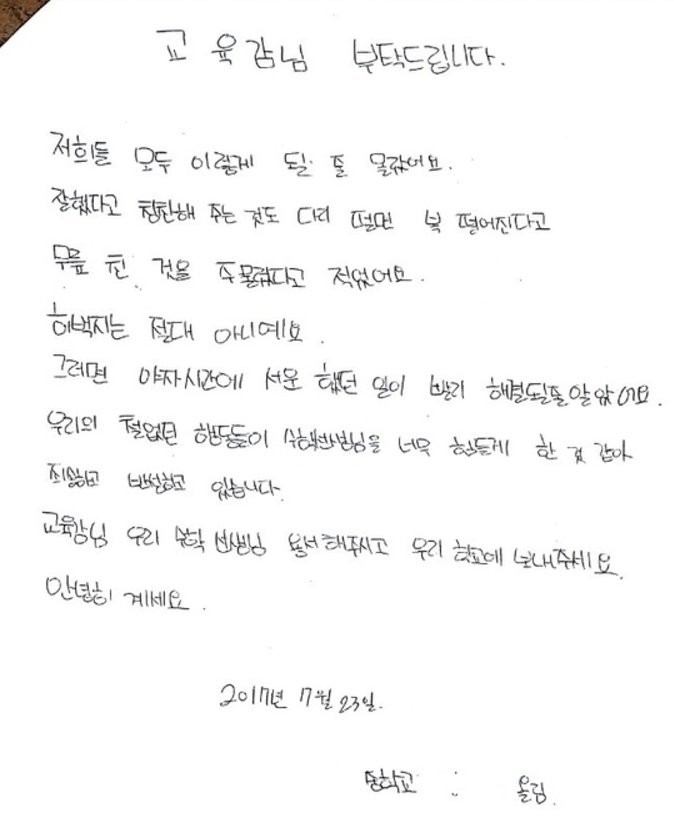 교육감님 부탁드립니다.
저희들 모두 이렇게 될 줄 몰랐어요.
잘했다고 칭찬해 주는 것도 다리 떨면 복 떨어진다고
무릎 친 것을 주물렀다고 적었어요.
허벅지는 절대 아니예요.
그러면 야자시간에 서운 했던 일이 빨리 해결될줄알았어요.
우리의 철없던 행동들이 수학선생님을 너무 힘들게 한 것 같아
죄송하고 반성하고 있습니다.
교육감님 우리 수학 선생님 용서해주시고 우리 학교에 보내주세요.
안녕히 계세요.
2017년 7월 23일.
중학교 : 올림.